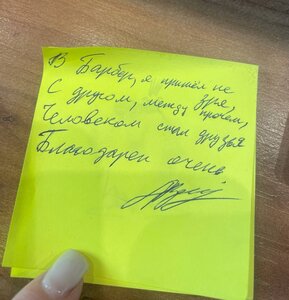 В Барбер, я пришёл не зря,
С другом, между прочем,
Человеком стал друзья
Благодарен очень